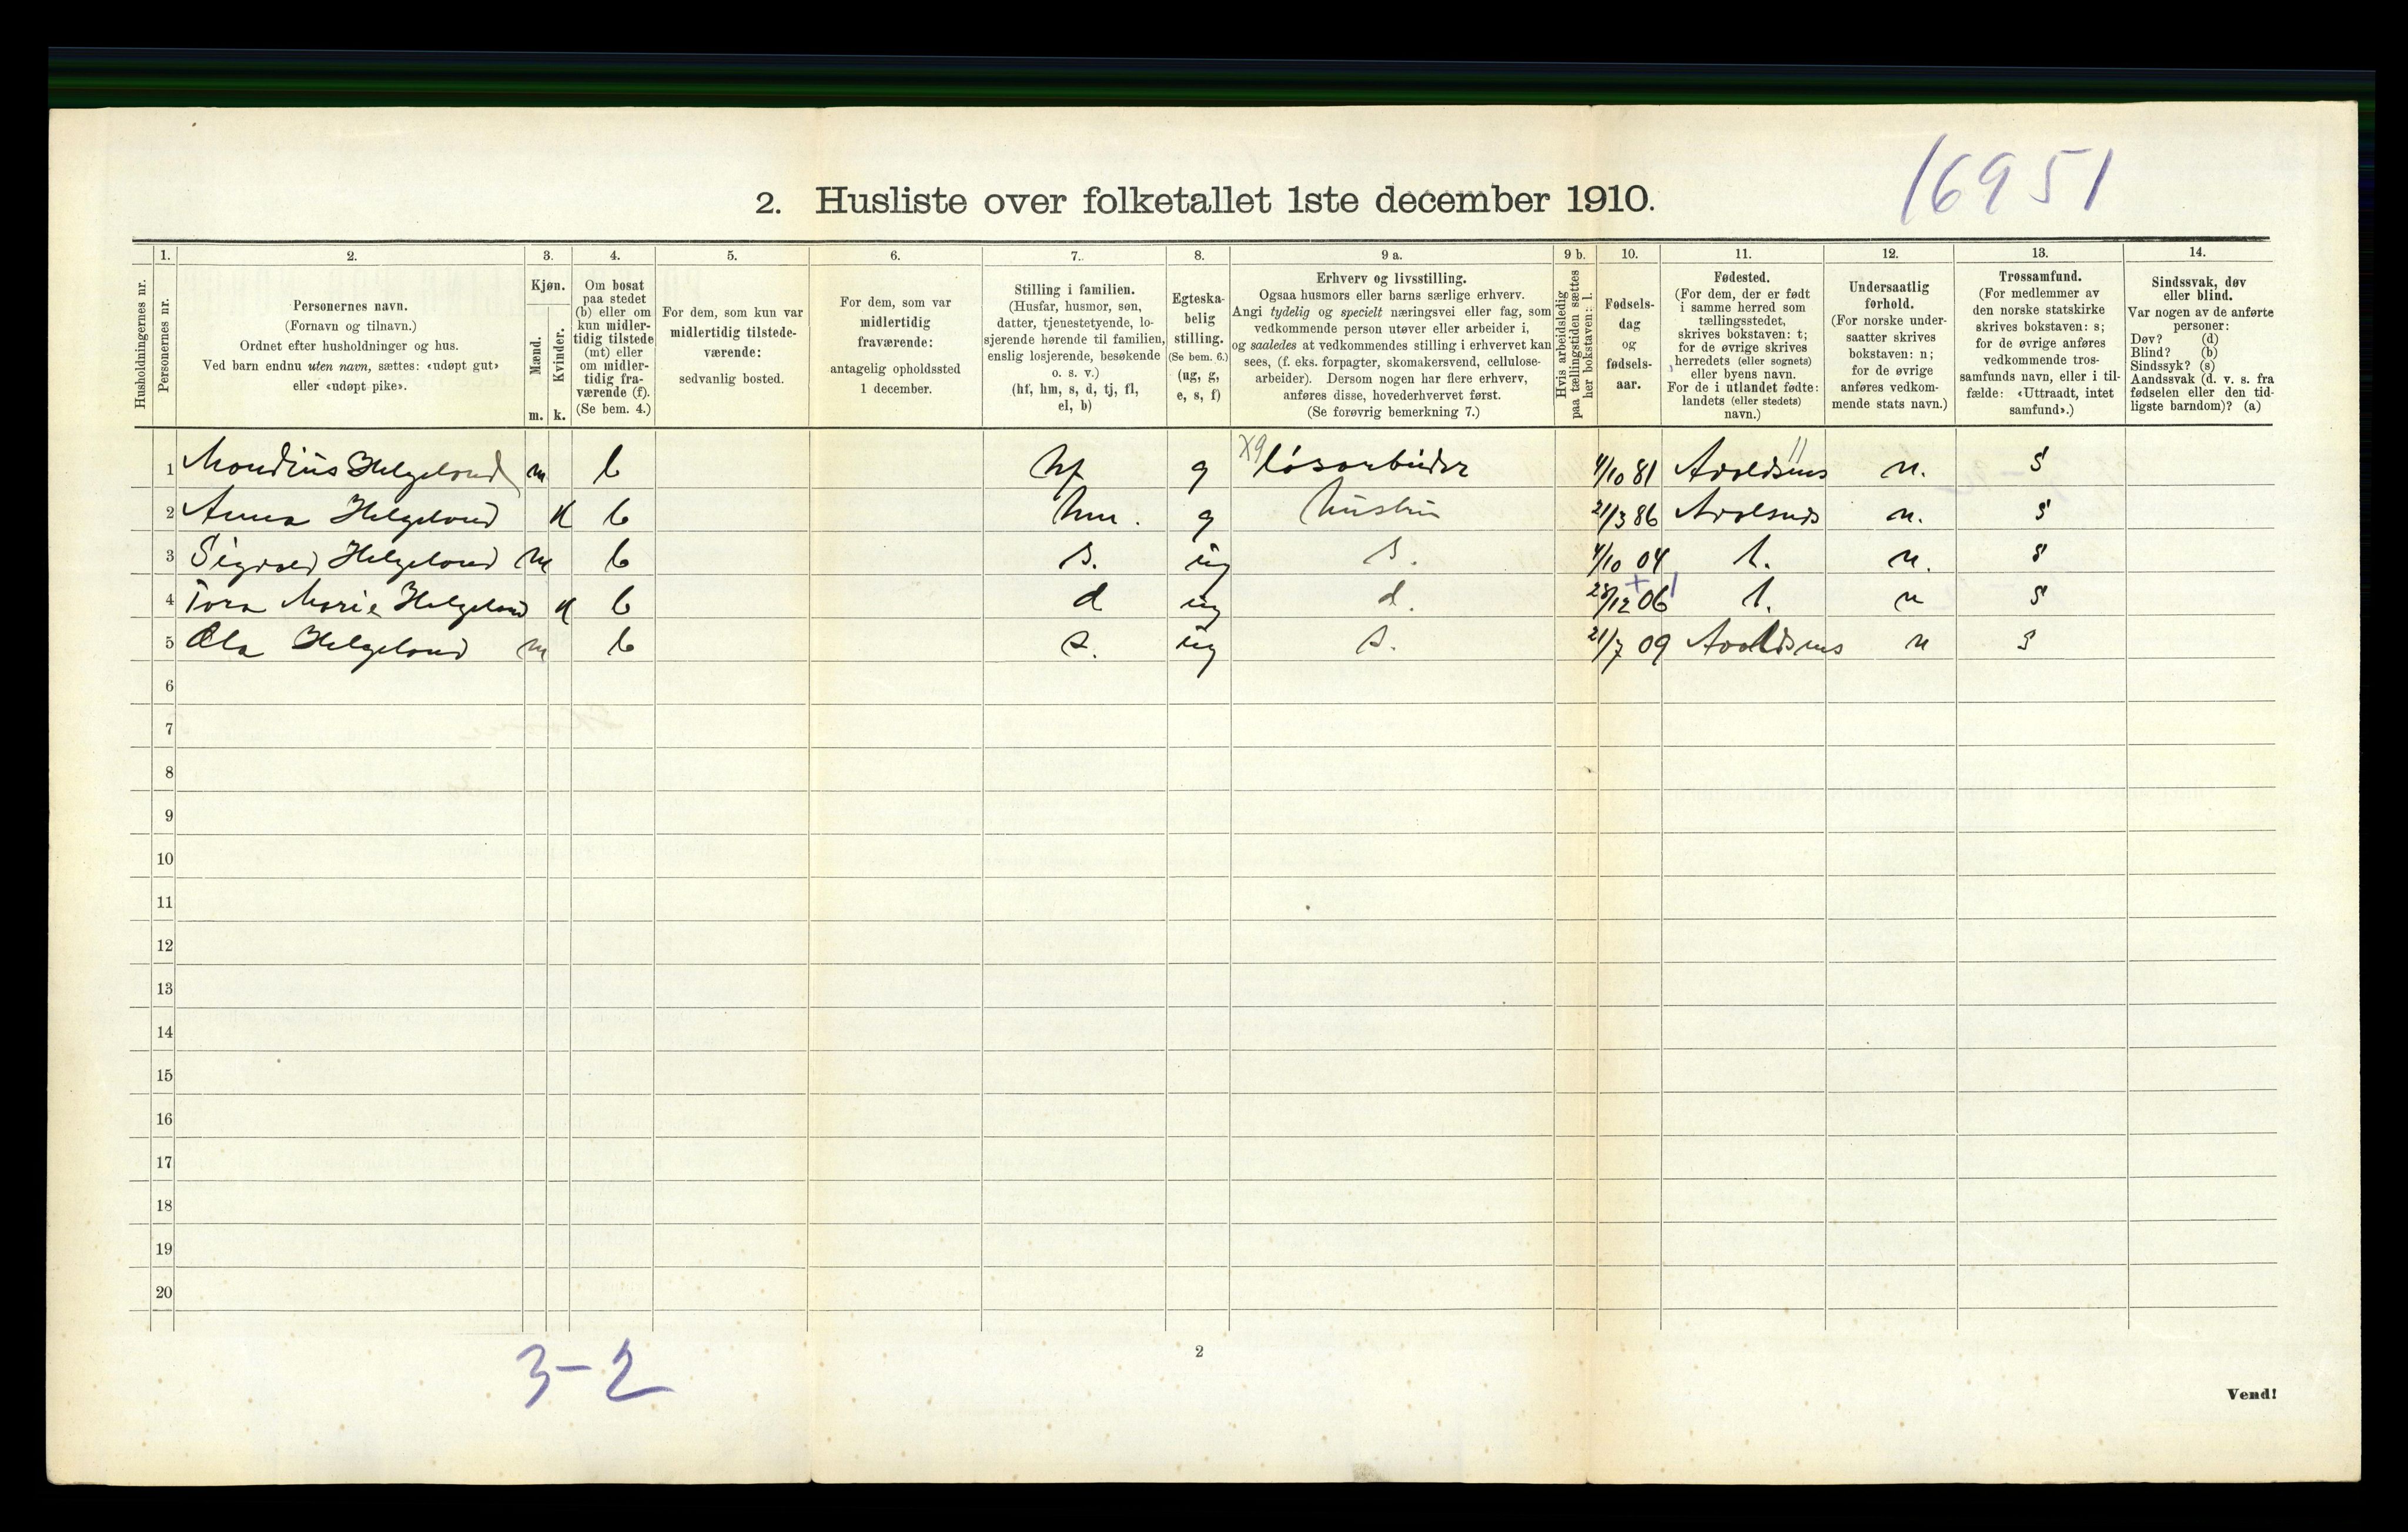 16951
2. Husliste over folketallet 1ste december 1910.
Husholdningernes nr.
1.
Personernes nr.
2.
Personernes navn.
(Fornavn og tilnavn.)
Ordnet efter husholdninger og hus.
Ved barn endnu uten navn, sættes: «udøpt gut»
eller «udøpt pike».
3.
Kjøn.
Mænd.
Kvinder.
m. k.
4.
Om bosat
paa stedet
(b) eller om
kun midler-
tidig tilstede
(mt) eller
om midler-
tidig fra-
værende (f).
(Se bem. 4.)
5.
For dem, som kun var
midlertidig tilstede-
værende:
sedvanlig bosted.
6.
For dem, som var
midlertidig
fraværende:
antagelig opholdssted
1 december.
7.
Stilling i familien.
(Husfar, husmor, søn,
datter, tjenestetyende, lo-
sjerende hørende til familien,
enslig losjerende, besøkende
o. s. v.)
(hf, hm, s, d, tj, fl,
el, b)
8.
Egteska-
belig
stilling.
(Se bem. 6.)
(ug, g,
e, s, f)
9 a.
Erhverv og livsstilling.
Ogsaa husmors eller barns særlige erhverv.
Angi tydelig og specielt næringsvei eller fag, som
vedkommende person utøver eller arbeider i,
og saaledes at vedkommendes stilling i erhvervet kan
sees, (f. eks. forpagter, skomakersvend, cellulose-
arbeider). Dersom nogen har flere erhverv,
anføres disse, hovederhvervet først.
(Se forøvrig bemerkning 7.)
9 b.
Hvis arbeidsledig
paa tællingstiden sættes
her bokstaven: l.
10.
Fødsels-
dag
og
fødsels-
aar.
11.
Fødested.
(For dem, der er født
i samme herred som
tællingsstedet,
skrives bokstaven: t;
for de øvrige skrives
herredets (eller sognets)
eller byens navn.
For de i utlandet fødte:
landets (eller stedets)
navn.)
12.
Undersaatlig
forhold.
(For norske under-
saatter skrives
bokstaven: n;
for de øvrige
anføres vedkom-
mende stats navn.)
13.
Trossamfund.
(For medlemmer av
den norske statskirke
skrives bokstaven: s;
for de øvrige anføres
vedkommende tros-
samfunds navn, eller i til-
fælde: «Uttraadt, intet
samfund».)
14.
Sindssvak, døv
eller blind.
Var nogen av de anførte
personer:
Døv? (d)
Blind? (b)
Sindssyk? (s)
Aandssvak (d. v. s. fra
fødselen eller den tid-
ligste barndom)? (a)
1 Helgeland m b hf g X9 løsarbeider 4/10 81 n. s
2 Anna Helgeland k b hm. g hustru 21/3 86 n. s
3 Sigvald Helgeland m b s. ug s. 4/10 04 t. n. s
4 Tora Marie Helgeland k b d ug d. 28/12 06 t. n s
5 Ola Helgeland m b s. ug s. 21/7 09 n s
6
7
8
9
10
11
12
13
14
15
16
17
18
19
20
3-2
2
Vend!